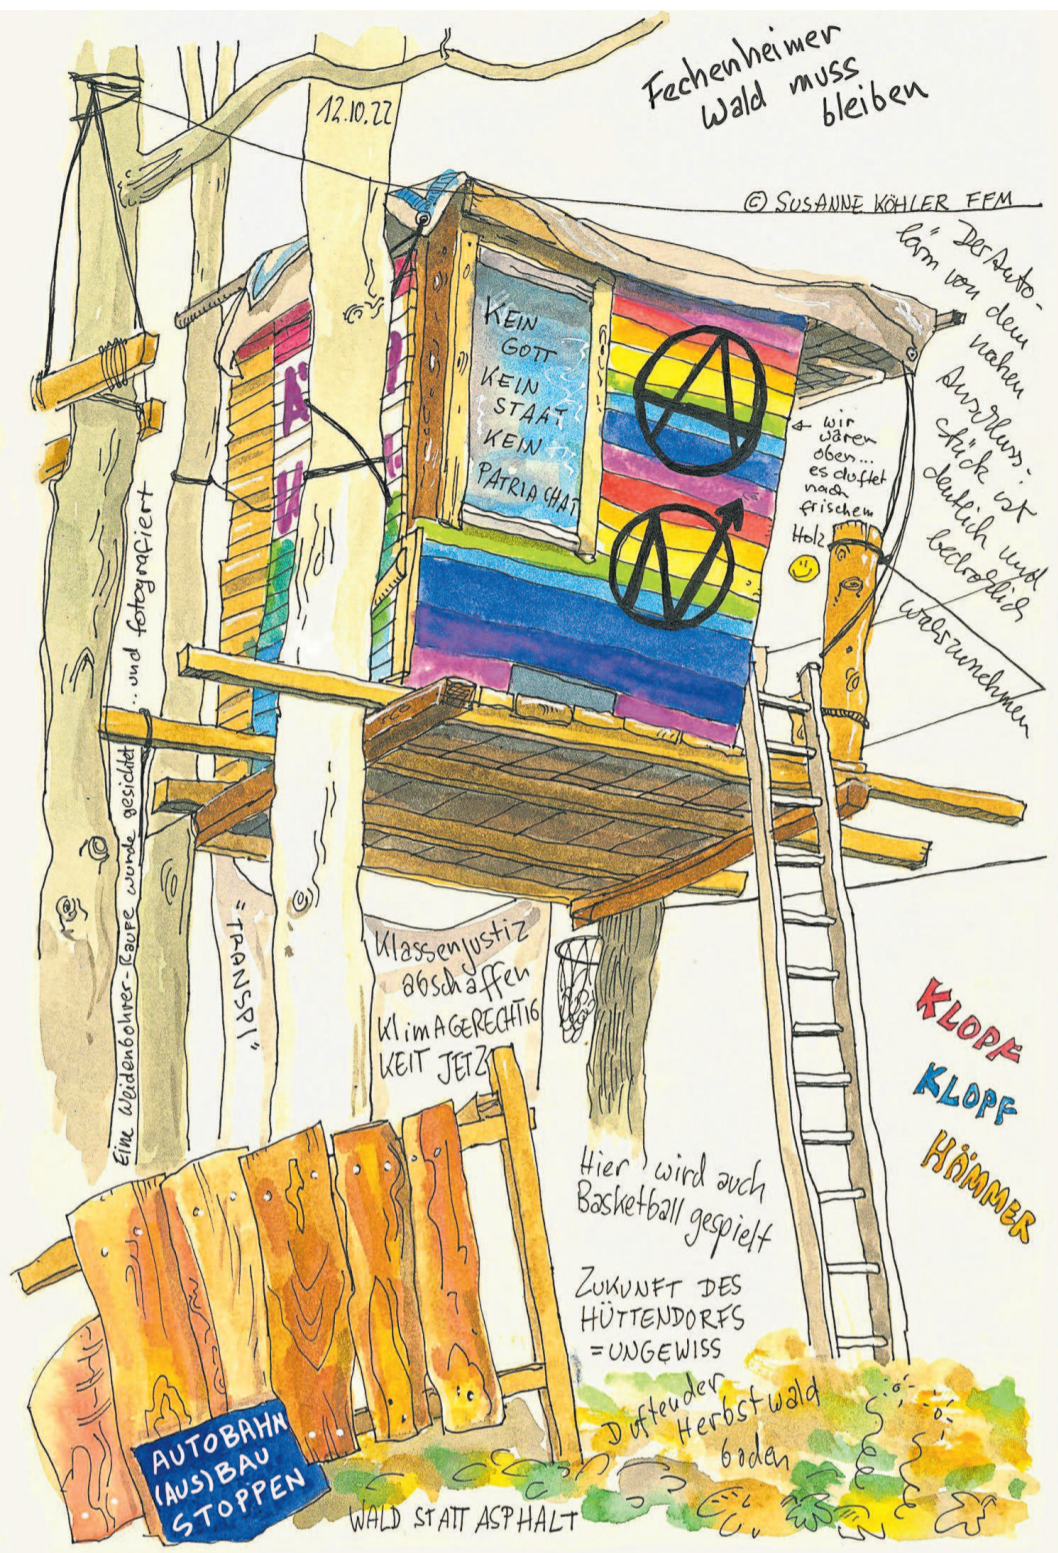 12.10.22
Fechenheimer
Wald muss
bleiben
© SUSANNE KÖHLER FFM
Der Auto-
lärm von dem
nahen
Anschluss-
stück ist
deutlich und
bedrohlich
wahrzunehmen
KEIN
GOTT
KEIN
STAAT
KEIN
PATRIACHAT
wir
wären
oben...
es duftet
nach
frischem
Holz
Eine Weidenbohrer-Raupe wurde gesichtet ...und fotografiert
"TRANSPI"
Klassenjustiz
abschaffen
KlimAGERECHTIG
KEIT JETZ
KLOPF
KLOPF
HÄMMER
Hier wird auch
Basketball gespielt
ZUKUNFT DES
HÜTTENDORFS
= UNGEWISS
Duftender
Herbstwald
boden
AUTOBAHN
(AUS)BAU
STOPPEN
WALD STATT ASPHALT